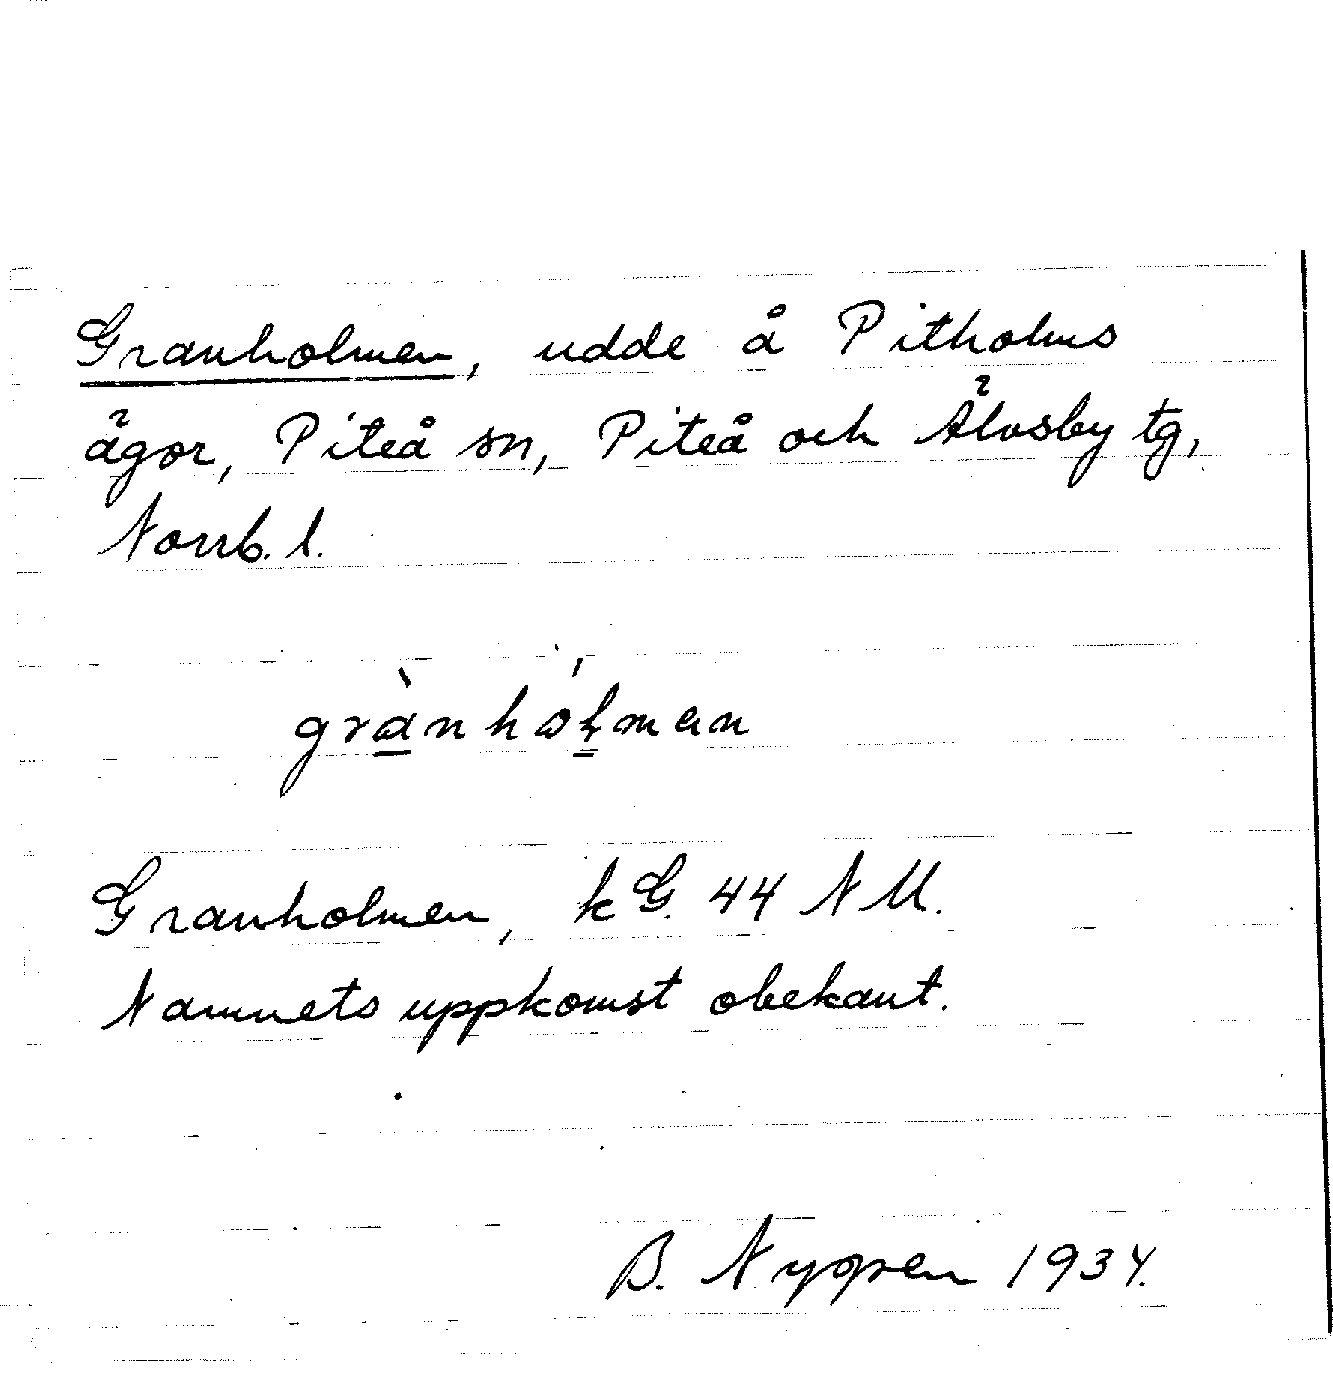 Granholmen, udde å Pitholms
ägor, Piteå sn, Piteå och Älvsby tg,
Norrb. l.
grànhól̳mən
Granholmen, kG. 44 N M.
Namnets uppkomst obekant.
B. Nygren 1934.